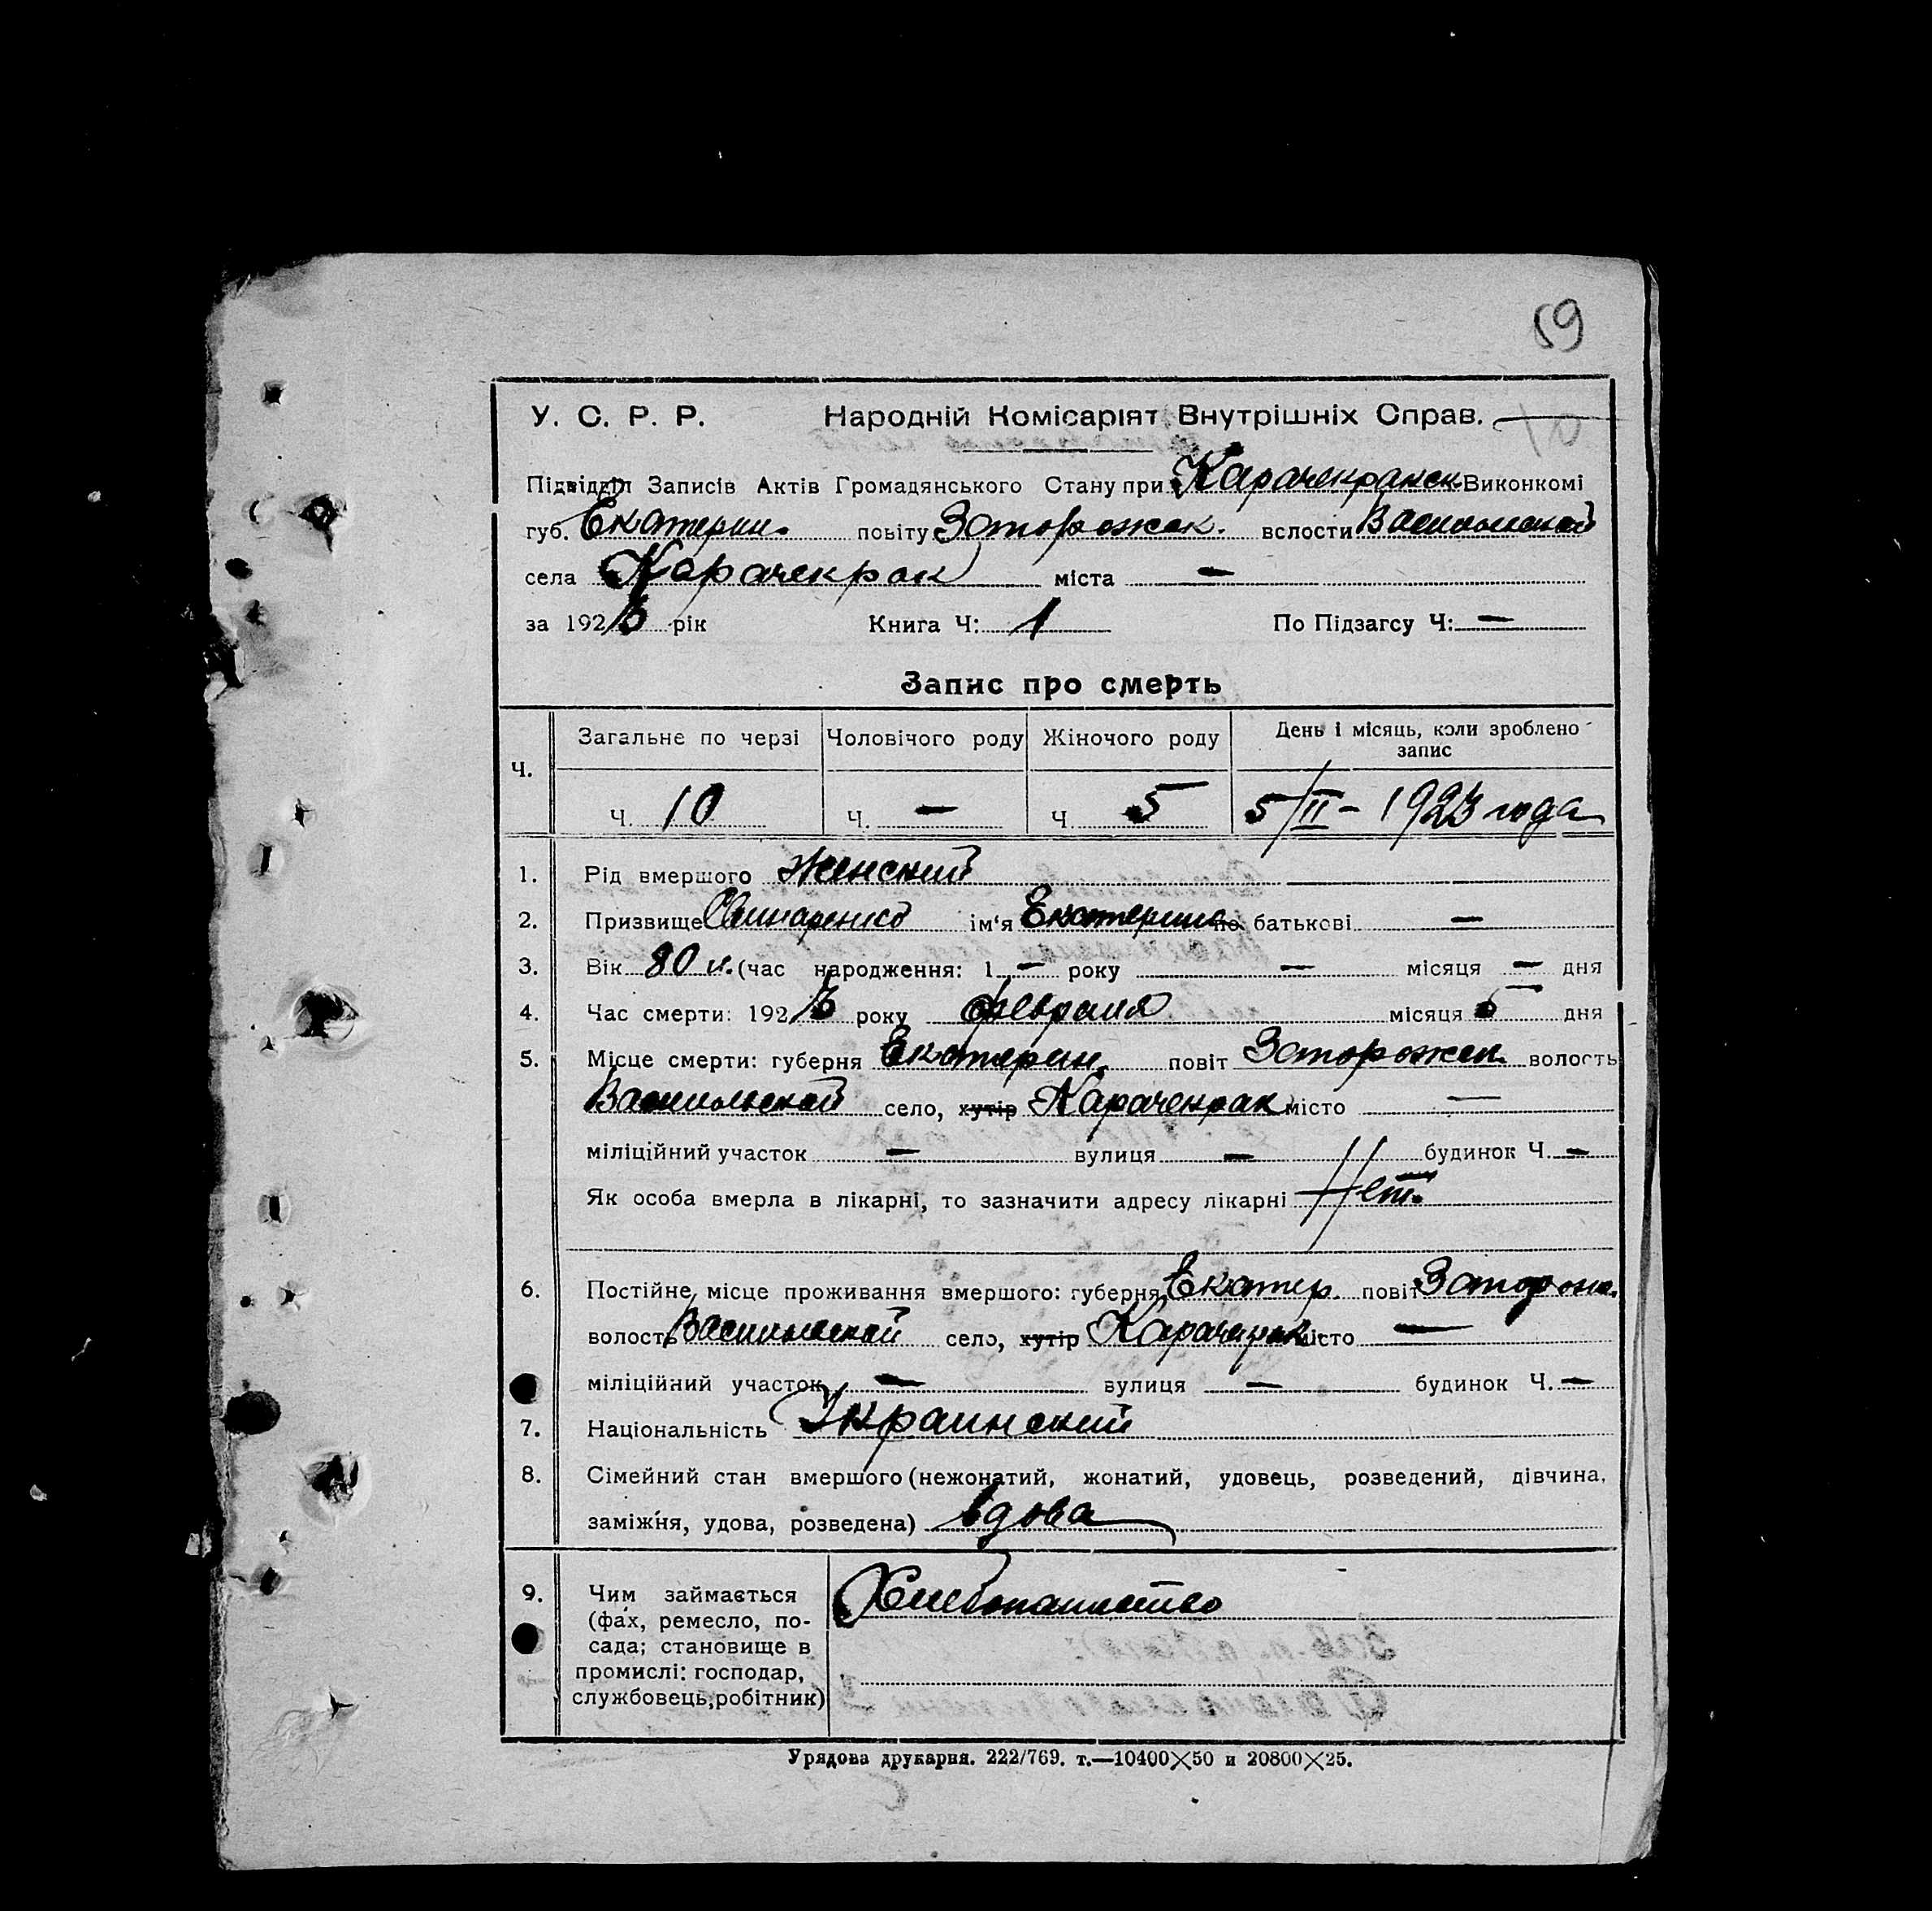 59
У. С. Р. Р. Народній Комісаріят Внутрішніх Справ.
Підвідділ Записів Актів Громадянського Стану при Карачекракск Виконкомі
губ. Екатерин. повіту Запорожск. волости Васильевской
села Карачекрак міста —
за 1923 рік Книга Ч: 1 По Підзагсу Ч: —
Запис про смерть
Ч. Загальне по черзі Чоловічого роду Жіночого роду День і місяць, коли зроблено запис
Ч. 10 Ч. — Ч. 5 5/II – 1923 года
1. Рід вмершого Женский
2. Призвище ім'я Екатерина по батькові —
3. Вік 80 л. (час народження: 1 — року — місяця — дня
4. Час смерти: 1923 року февраля місяця 5 дня
5. Місце смерти: губерня Екатерин. повіт Запорожск. волость
Васильевской село, хутір Карачекрак місто —
міліційний участок — вулиця — будинок Ч. —
Як особа вмерла в лікарні, то зазначити адресу лікарні Нет.
6. Постійне місце проживання вмершого: губерня Екатер. повіт Запорож.
волость Васильевской село, хутір Карачекрак місто —
міліційний участок — вулиця — будинок Ч. —
7. Національність Украинский
8. Сімейний стан вмершого (нежонатий, жонатий, удовець, розведений, дівчина,
заміжня, удова, розведена) вдова
9. Чим займається Хлебопашество
(фах, ремесло, по-
сада; становище в
промислі: господар,
службовець, робітник)
Урядова друкарня. 222/769. т.—10400×50 и 20800×25.